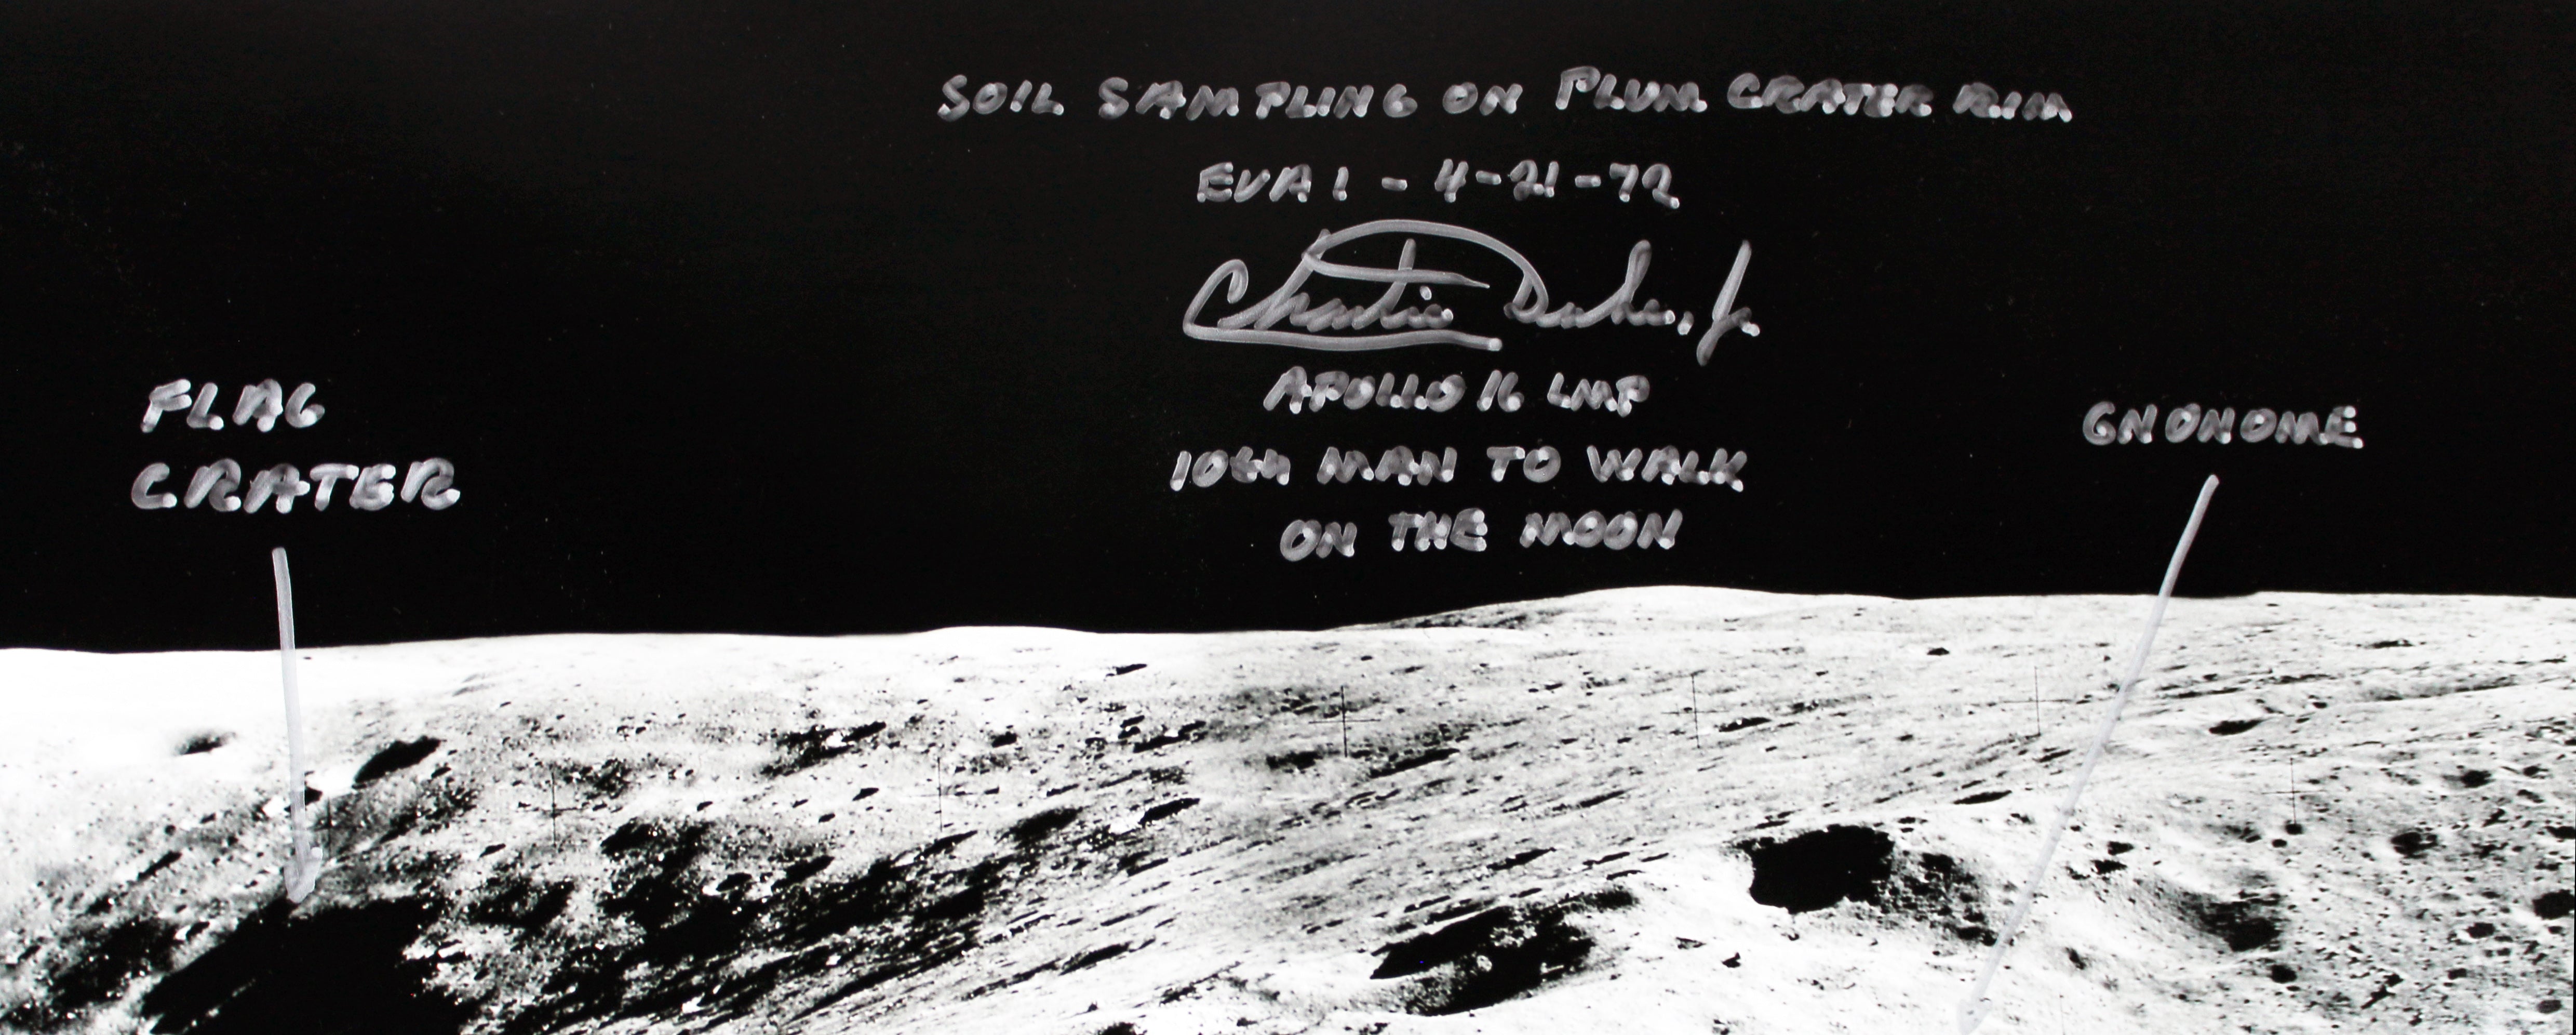 SOIL SAMPLING ON PLUM CRATER RIM
EVA 1 - 4-21-72
Charlie Duke, Jr.
APOLLO 16 LMP
10th MAN TO WALK
ON THE MOON
FLAG
CRATER
GNONOME